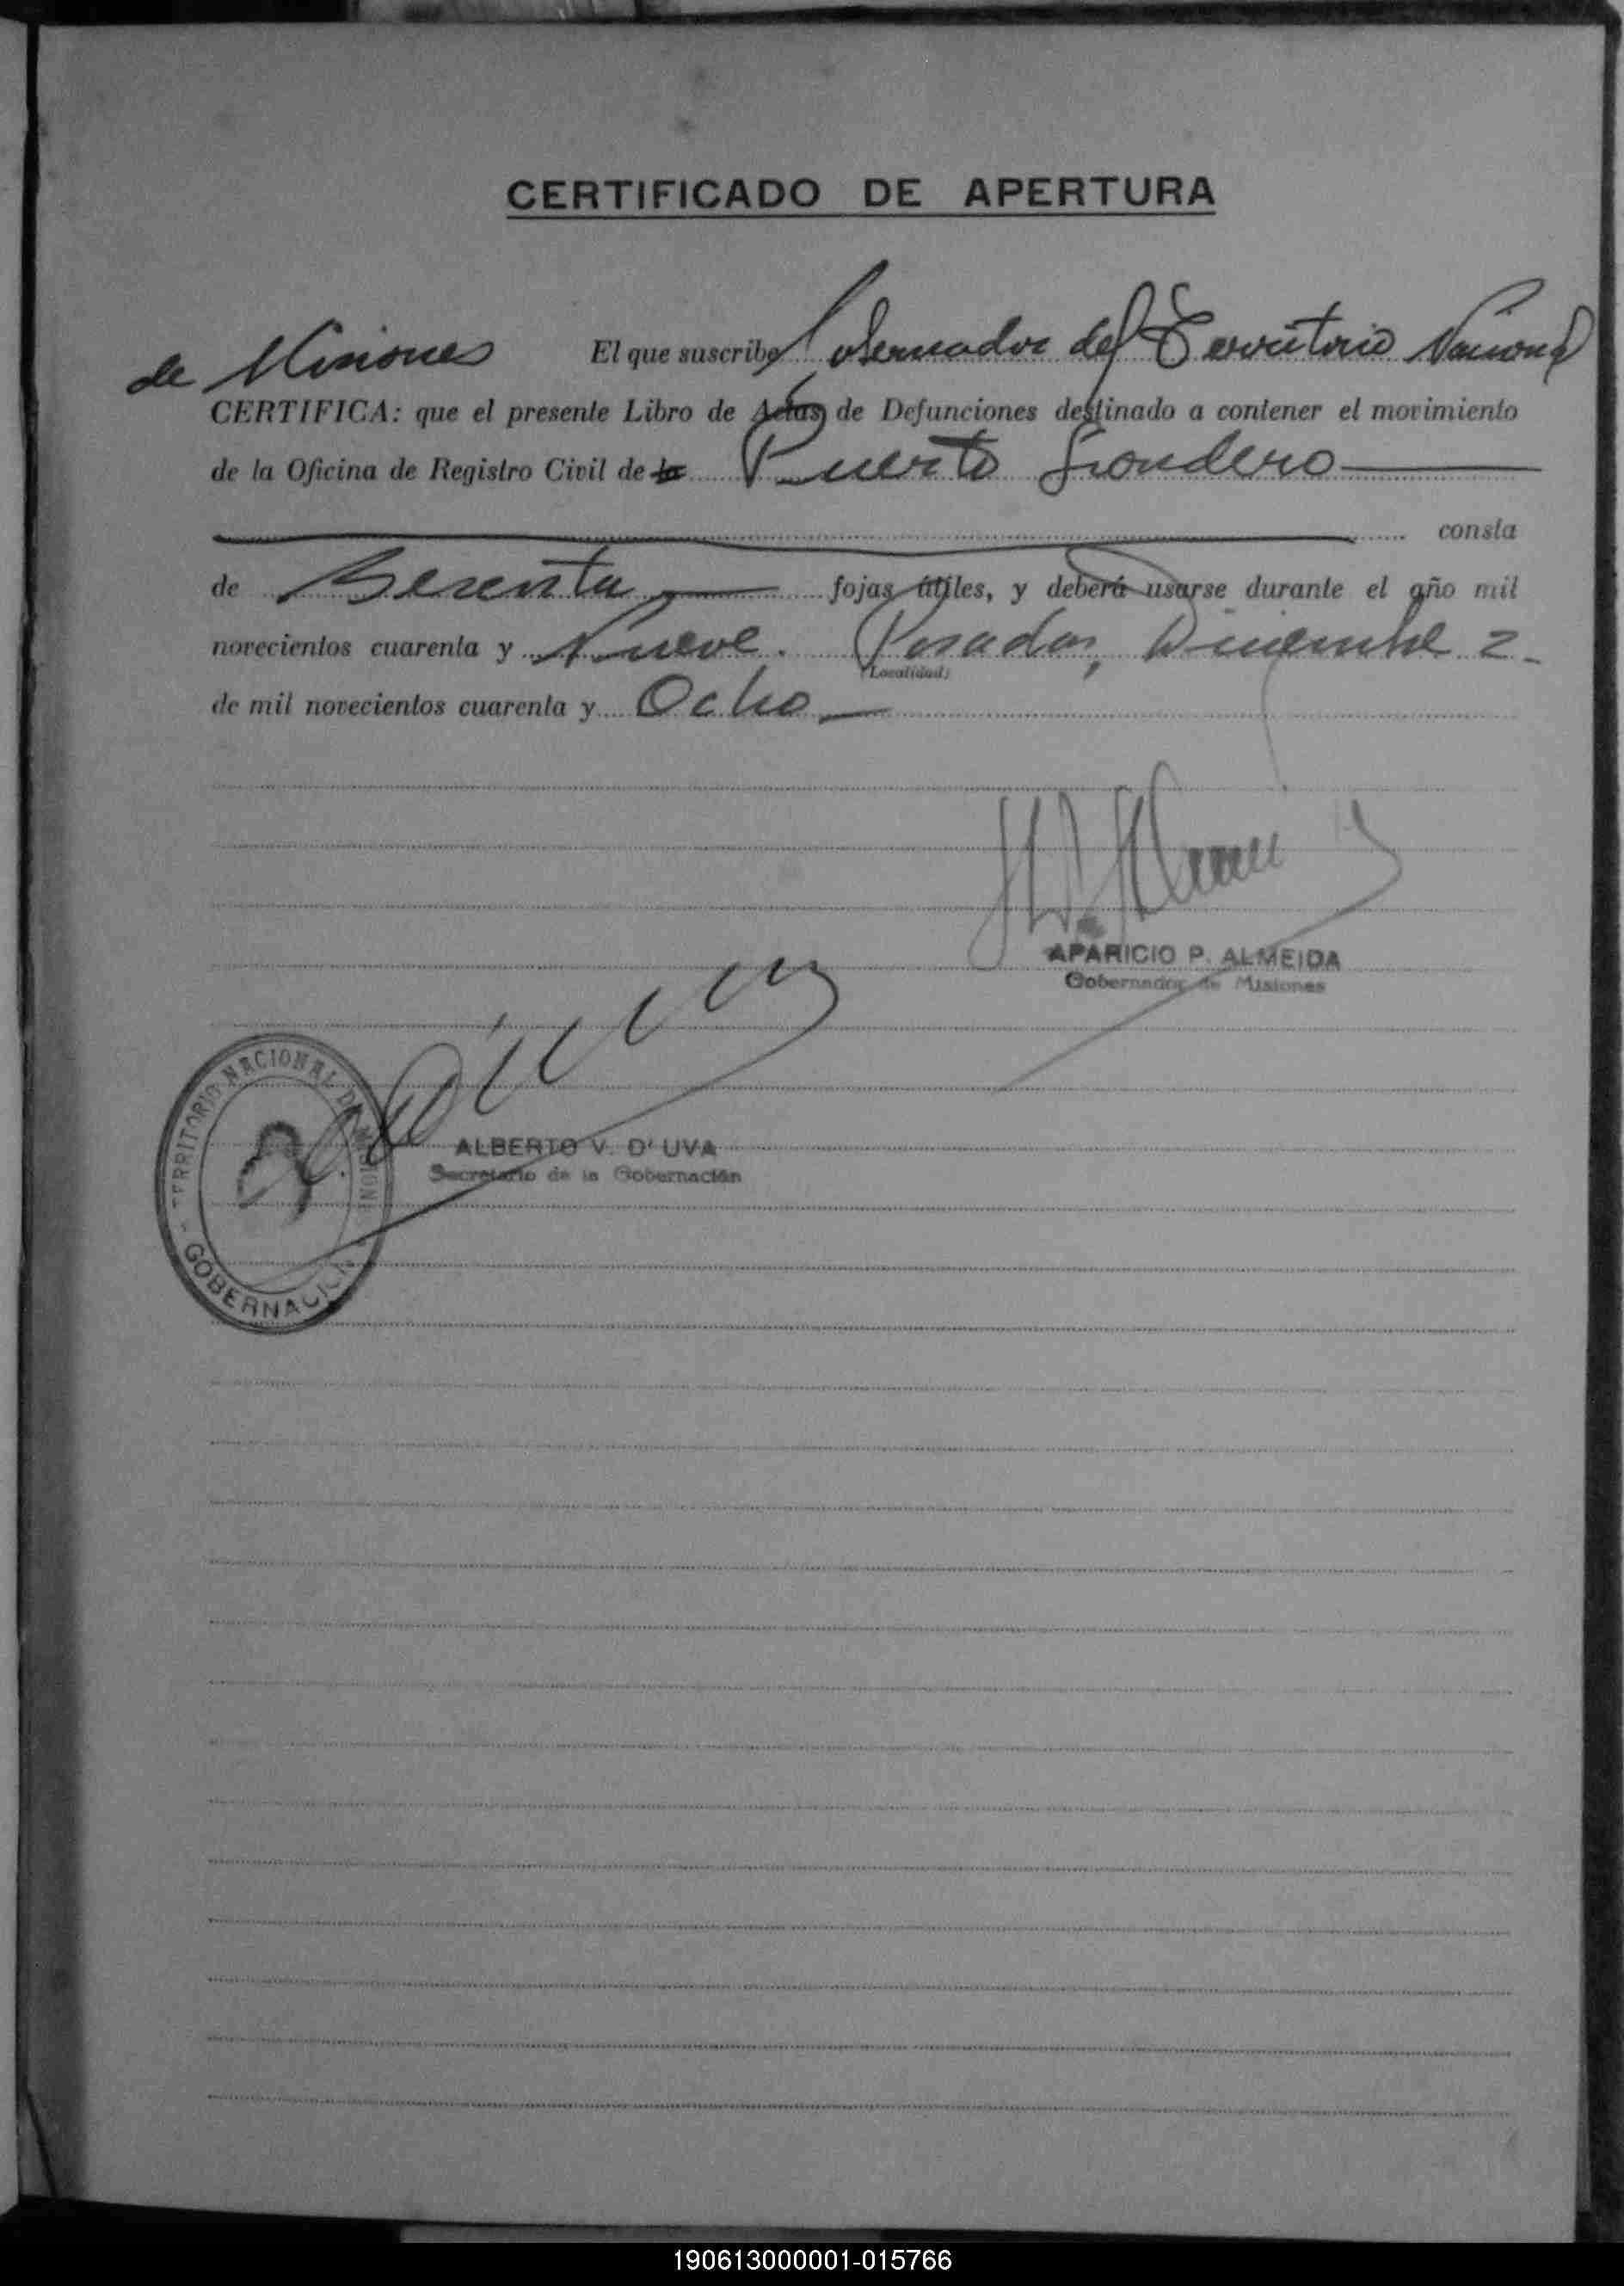 CERTIFICADO DE APERTURA
El que suscribe Gobernador del Territorio Nacional
de Misiones
CERTIFICA: que el presente Libro de Actas de Defunciones destinado a contener el movimiento
de la Oficina de Registro Civil de la Puerto
consta
de Sesenta fojas útiles, y deberá usarse durante el año mil
novecientos cuarenta y Nueve. Posadas, Diciembre 2
(Localidad)
de mil novecientos cuarenta y Ocho
APARICIO P. ALMEIDA
Gobernador de Misiones
TERRITORIO NACIONAL DE MISIONES
GOBERNACION
ALBERTO V. D'UVA
Secretario de la Gobernación
190613000001-015766